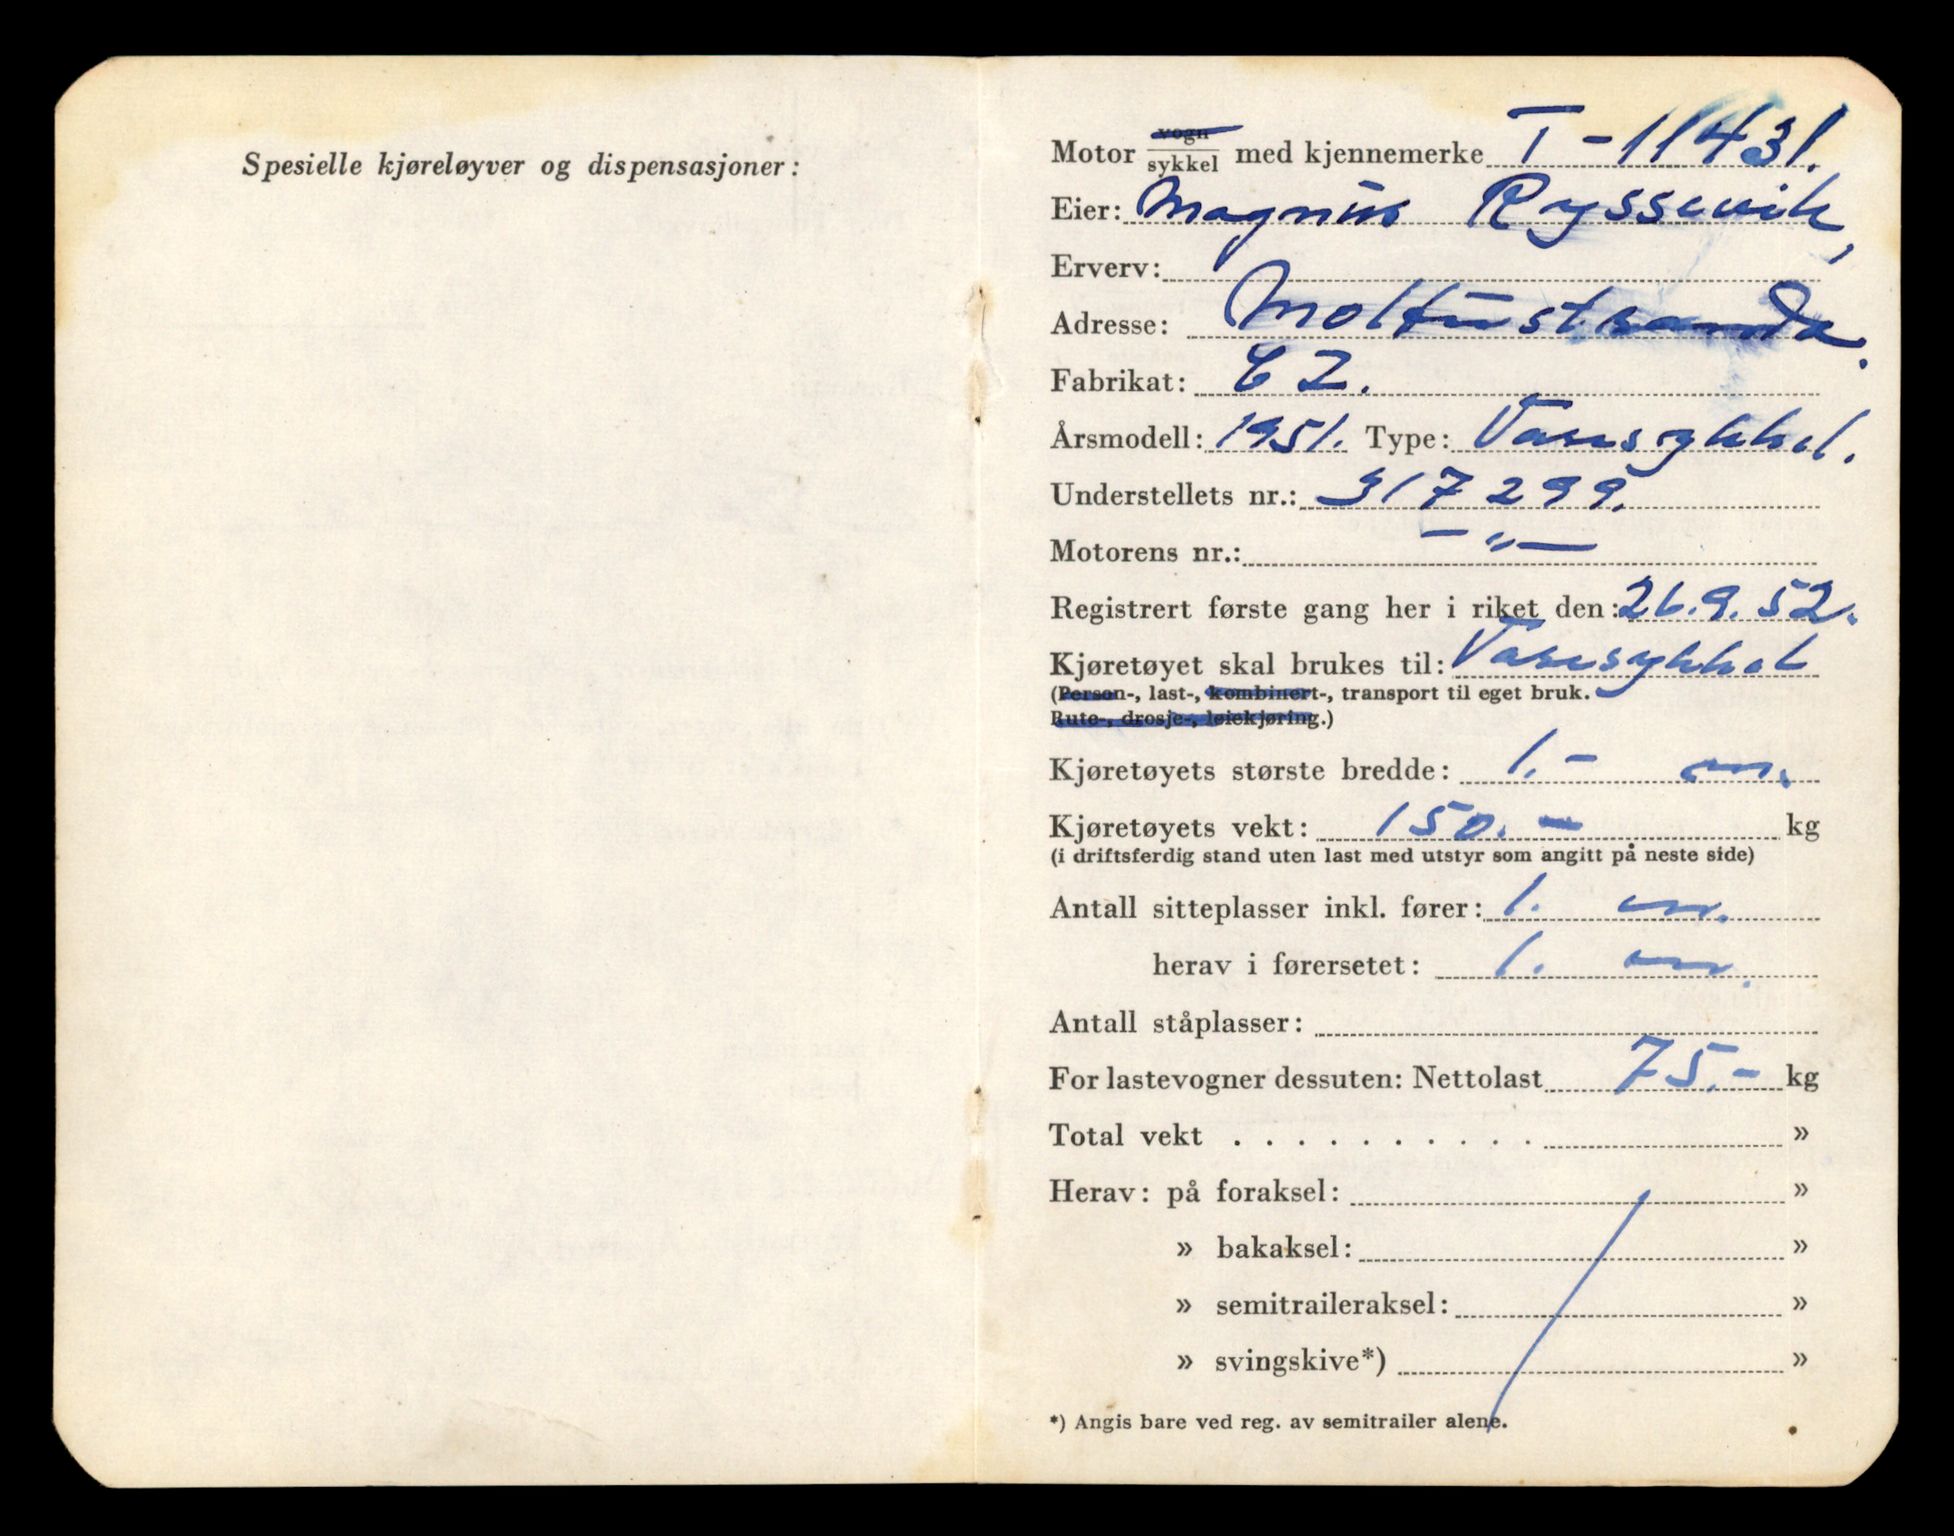 Spesielle kjøreløyver og dispensasjoner:
Motor vogn/sykkel med kjennemerke T - 11431.
Eier: Magnus Ryssevik,
Erverv:
Adresse: Moltustranda.
Fabrikat: CZ.
Årsmodell: 1951. Type: Varesykkel.
Understellets nr.: 317299.
Motorens nr.: — „ —
Registrert første gang her i riket den: 26.9.52.
Kjøretøyet skal brukes til: Varesykkel
(Person-, last-, kombinert-, transport til eget bruk.
Rute-, drosje-, leiekjøring.)
Kjøretøyets største bredde: 1.- m.
Kjøretøyets vekt: 150.- kg
(i driftsferdig stand uten last med utstyr som angitt på neste side)
Antall sitteplasser inkl. fører: 1. m.
herav i førersetet: 1. m.
Antall ståplasser:
For lastevogner dessuten: Nettolast 75.- kg
Total vekt . . . . . . . . . . »
Herav: på foraksel: »
» bakaksel: »
» semitraileraksel: »
» svingskive*) »
*) Angis bare ved reg. av semitrailer alene.